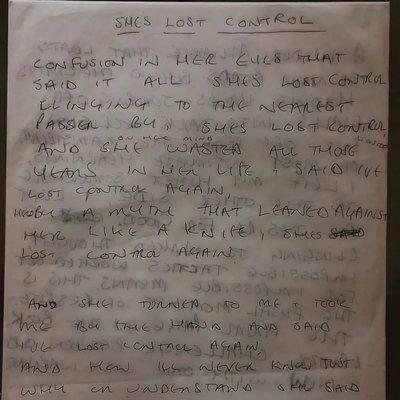 SHES LOST CONTROL
CONFUSION IN HER EYES THAT
SAID IT ALL SHES LOST CONTROL
CLINGING TO THE NEAREST
PASSER BY, SHES LOST CONTROL,
ON HER MIND
AND SHE WASTED ALL THOSE
YEARS IN HER LIFE & SAID IVE
LOST CONTROL AGAIN,
BY A MYTH THAT LEANED AGAINST
HER LIKE A KNIFE, SHES
LOST CONTROL AGAIN.
AND SHE TURNED TO ME & TOOK
ME BY THE HAND AND SAID
IVE LOST CONTROL AGAIN,
AND HOW ILL NEVER KNOW JUST
WHY OR UNDERSTAND SHE SAID